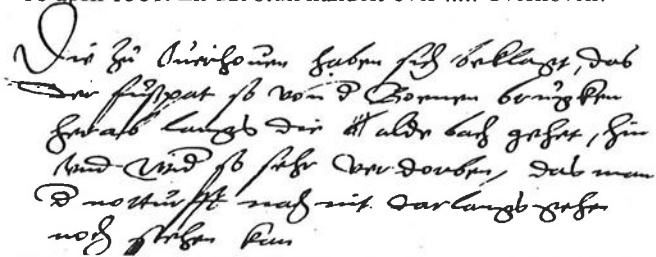 Die zu Querhouen haben sich beklagt, das
der fußpat so von d Boemen brugken
herab langs die alde bach gehet, hin
vnd wid so sehr verdorben, das man
d notturfft nach nit darlangs gehen
noch stehen kan